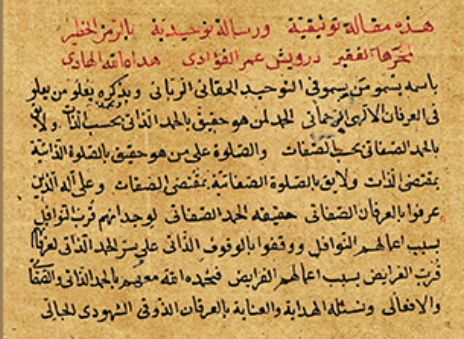 هذه مقالة توثيقية ورسالة توحيدية بالرمز الخطير
لمحررها الفقير درويش عمر الفؤادى هداه الله الهادى
باسمه يسمو من يسمو فى التوحيد الحقانى الربانى وبذكره يعلو من يعلو
فى العرفان الالهى الرحمانى الحمد لمن هو حقيق بالحمد الذاتى بحسب الذات ولائق
بالحمد الصفاتى بحسب الصفات والصلوة على من هو حقيق بالصلوة الذاتية
بمقتضى الذات ولايق بالصلوة الصفاتية بمقتضى الصفات وعلى آله الذين
عرفوا بالعرفان الصفاتى حقيقة الحمد الصفاتى لوجدانهم قرب النوافل
بسبب اعمالهم النوافل ووقفوا بالوقوف الذاتى على سر الحمد الذاتى
قرب الفرايض بسبب اعمالهم الفرايض فنحمد الله معهم بالحمد الذاتى والصفاتى
والافعالى ونسئله الهداية والعناية بالعرفان الذوقى الشهودى